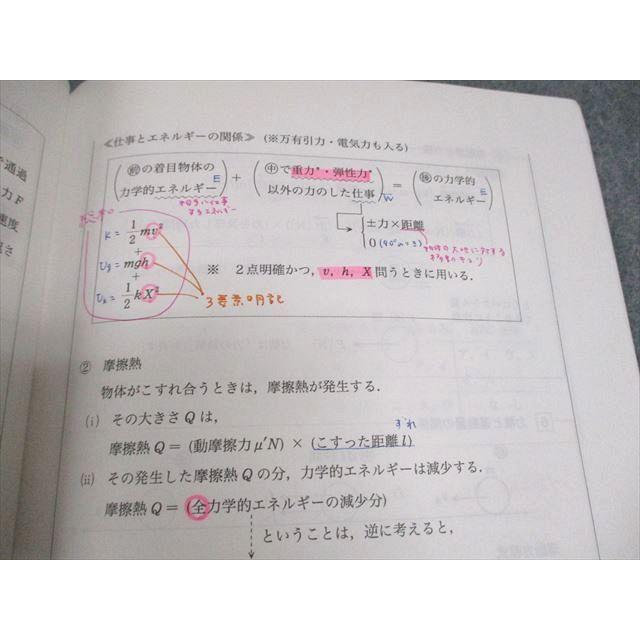 ≪仕事とエネルギーの関係≫ (※万有引力・電気力も入る)
(前の着目物体の力学的エネルギー) + (中で重力・弾性力以外の力のした仕事) = (後の力学的エネルギー)
E
W
E
±力×距離
0 (90°のとき)
K = 1/2 mv²
+
Ug = mgh
+
Uk = 1/2 kX²
3要素明記
※ 2点明確かつ, v, h, X 問うときに用いる.
② 摩擦熱
物体がこすれ合うときは, 摩擦熱が発生する.
(i) その大きさ Q は,
ずれ
摩擦熱 Q = (動摩擦力 μ′N) × (こすった距離 l)
(ii) その発生した摩擦熱 Q の分, 力学的エネルギーは減少する.
摩擦熱 Q = (全力学的エネルギーの減少分)
ということは, 逆に考えると,
で通過
力 F
速度
さ